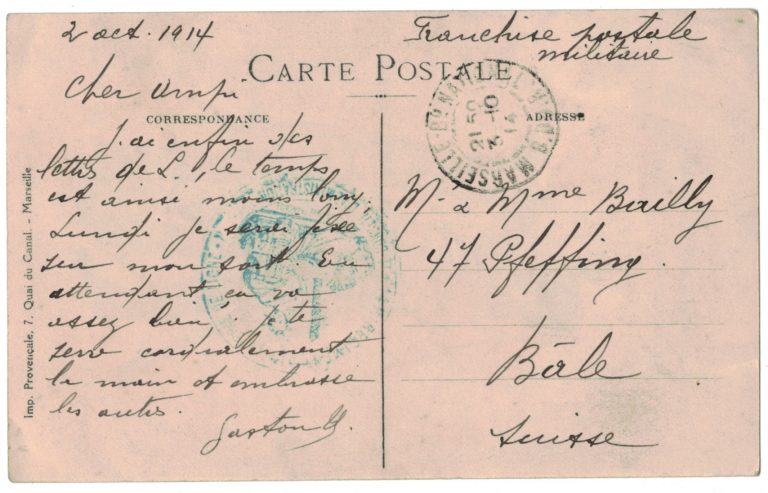 2 oct. 1914
Franchise postale
militaire
CARTE POSTALE
Cher ami
CORRESPONDANCE
ADRESSE
J'ai enfin des
lettres de L., le temps
est ainsi moins long.
Lundi je serai fixé
sur mon sort. En
attendant ça va
assez bien. Je te
serre cordialement
la main et embrasse
les autres.
Gaston
MARSEILLE
21 50
3 -10
14
MARSEILLE
M. & Mme Bailly
47 Pfeffing.
Bâle
Suisse
Imp. Provençale, 7, Quai du Canal. - Marseille